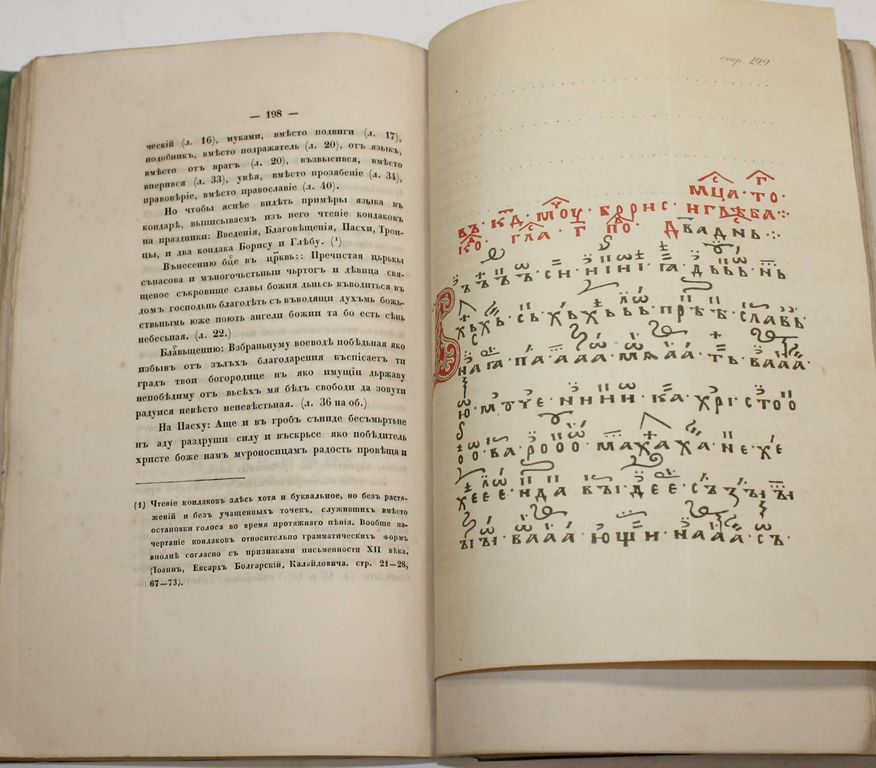 — 198 —
ческій (л. 16), муками, вмѣсто подвиги (л. 17),
подобникъ, вмѣсто подражатель (л. 20), отъ языкъ,
вмѣсто отъ врагъ (л. 20), възвысився, вмѣсто
вперився (л. 33), увѣя, вмѣсто прозябеніе (л. 34),
правовѣріе, вмѣсто православіе (л. 40).
Но чтобы яснѣе видѣть примѣры языка въ
кондарѣ, выписываемъ изъ него чтеніе кондаковъ
на праздники: Введенія, Благовѣщенія, Пасхи, Трои-
цы, и два кондака Борису и Глѣбу. (¹)
Вънесению бце въ црквь:: Пречистая църькы
съпасова и мъногочьстьныи чьртогъ и дѣвица свя-
щеное съкровище славы божия дьньсь въводиться въ
домъ господьнь благодѣть съ въводящи духъмь божь-
ствьнымь юже поють ангели божии та бо есть сѣнь
небесьная. (л. 22.)
Блавьщению: Взбраньному воеводѣ побѣдьная яко
избывъ отъ зълъхъ благодарения въспісаетъ ти
градъ твои богородице нъ яко имущии дьржаву
непобѣдиму отъ вьсѣхъ мя бѣдъ свободи да зовути
радуися невѣсто неневѣстьная. (л. 36 на об.)
На Пасху: Аще и въ гробъ съниде бесъмьртьне
нъ аду раздруши силу и въскрьсе яко побѣдитель
христе боже нам муроносицамъ радость провѣща и
(1) Чтеніе кондаковъ здѣсь хотя и буквальное, но безъ растя-
женій и безъ учащенныхъ точекъ, служившихъ вмѣсто
остановки голоса во время протяжнаго пѣнія. Вообще на-
чертаніе кондаковъ относительно грамматическихъ формъ
вполнѣ согласно съ признаками письменности XII вѣка.
(Іоаннъ, Ексархъ Болгарскій, Калайдовича. стр. 21—28,
67—73).
стр. 199
мца · то ·
въ · кд · моц · борис · и глѣба ·:·
ко · гла · г · по · дваднь ·:·
нага · па · ааа · мѧаа · тъ · ваaa ·
ю · моуче · нини · ка · хрі · сто о
оо · ва · роoo · махаха · не · хе
хеее · нда · въıдее · съзъıъı
ъıъı · вааа · ющи · нааа · съ ·